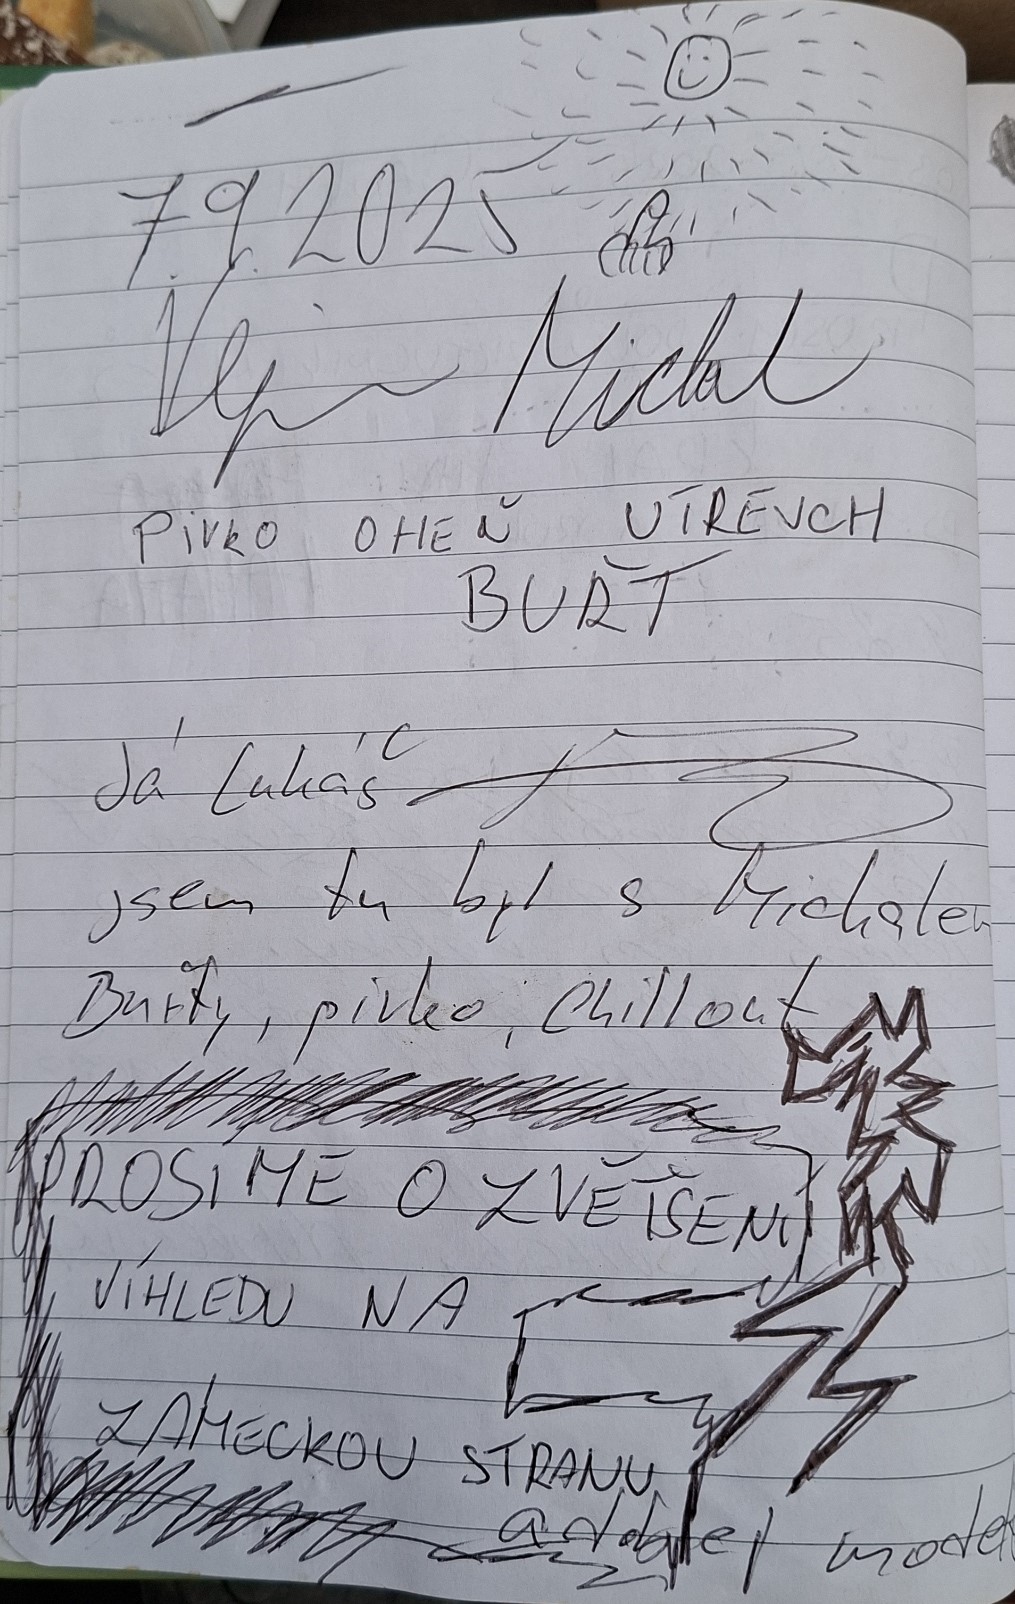 7.9.2025
Michal
PIVKO OHEŇ
BUŘT
Já Lukáš
jsem tu byl s Michalem
Buřty, pivko, Chillout
PROSIME O ZVĚTŠENI
VÍHLEDU NA
ZÁMECKOU STRANU